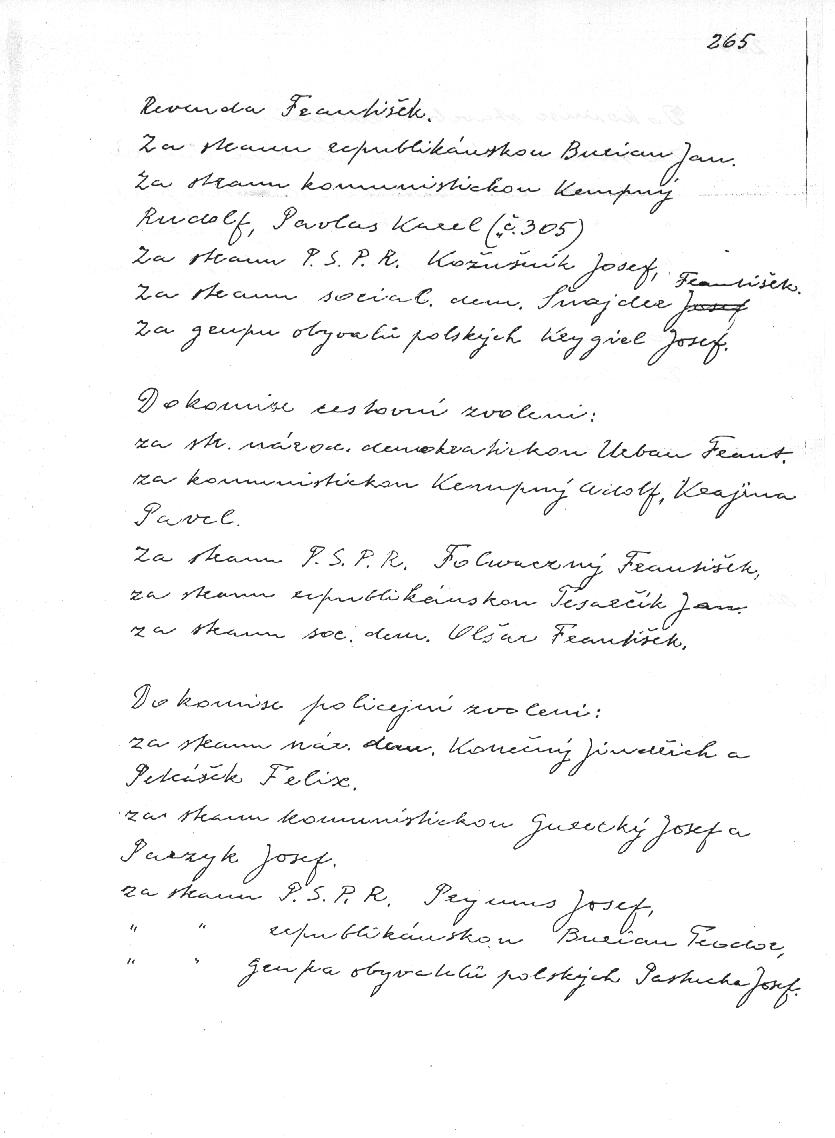 265
Revenda František.
Za stranu republikánskou Burian Jan.
Za stranu komunistickou Kempný
Rudolf, Pavlas Karel („č. 305)
Za stranu P. S. P. R. Kožušník Josef,
František.
Za stranu social. dem. Šnajder Josef
Za grupu obyvatelů polských Krygiel Josef.
Do komise cestovní zvoleni:
za str. národ. demokratickou Urban Frant.
za komunistickou Kempný Adolf, Krajina
Pavel.
Za stranu P. S. P. R. Folwarczný František,
za stranu republikánskou Tesarčík Jan.
za stranu soc. dem. Olšar František.
Do komise policejní zvoleni:
za stranu nár. dem. Konečný Jindřich a
Petrášek Felix.
za stranu komunistickou Gurecký Josef a
Parzyk Josef.
za stranu P. S. P. R. Prymus Josef,
" " republikánskou Burian Teodor,
" " grupa obyvatelů polských Pastucha Josef.